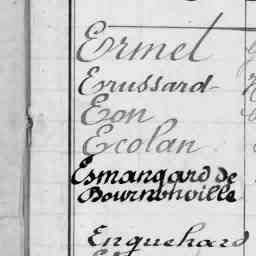 Ermel
Erussard
Eon
Ecolan
Esmangard de
Bournonville
Enquehard